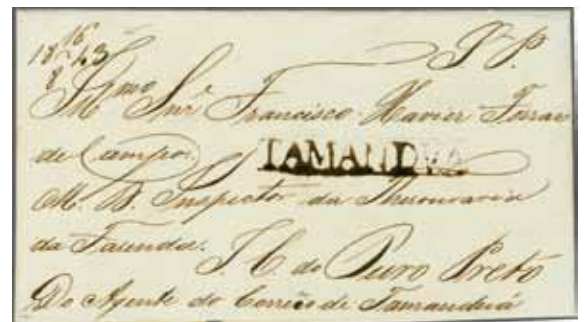 16
18 43
8
S. P.
Illmo Snr Francisco Xavier Ferraz
de Campos
TAMANDUA
M. D. Inspector da Thesouraria
da Fazenda.
I. C. do Ouro Preto
Do Agente do Correio de Tamanduá